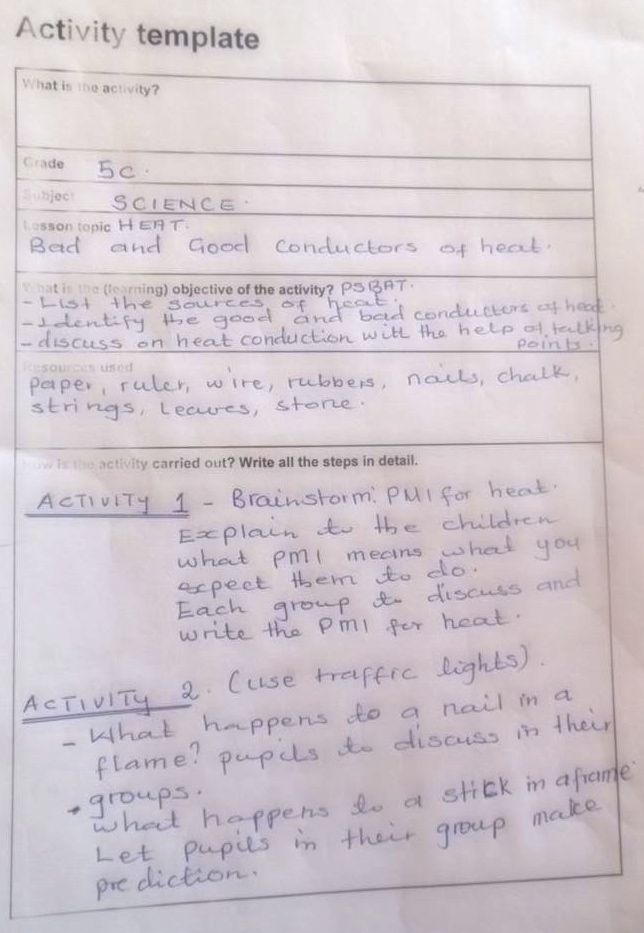 Activity template
What is the activity?
Grade 5C.
Subject SCIENCE.
Lesson topic HEAT.
Bad and Good conductors of heat.
What is the (learning) objective of the activity? PSBAT.
- List the sources of heat.
- Identify the good and bad conductors of heat.
- discuss on heat conduction with the help of talking
points.
Resources used
paper, ruler, wire, rubbers, nails, chalk,
strings, Leaves, stone.
How is the activity carried out? Write all the steps in detail.
ACTIVITY 1 - Brainstorm: PMI for heat.
Explain to the children
what PMI means what you
expect them to do.
Each group to discuss and
write the PMI for heat.
ACTIVITY 2. (use traffic lights).
- What happens to a nail in a
flame? pupils to discuss in their
groups.
what happens to a stick in a frame
Let pupils in their group make
prediction.